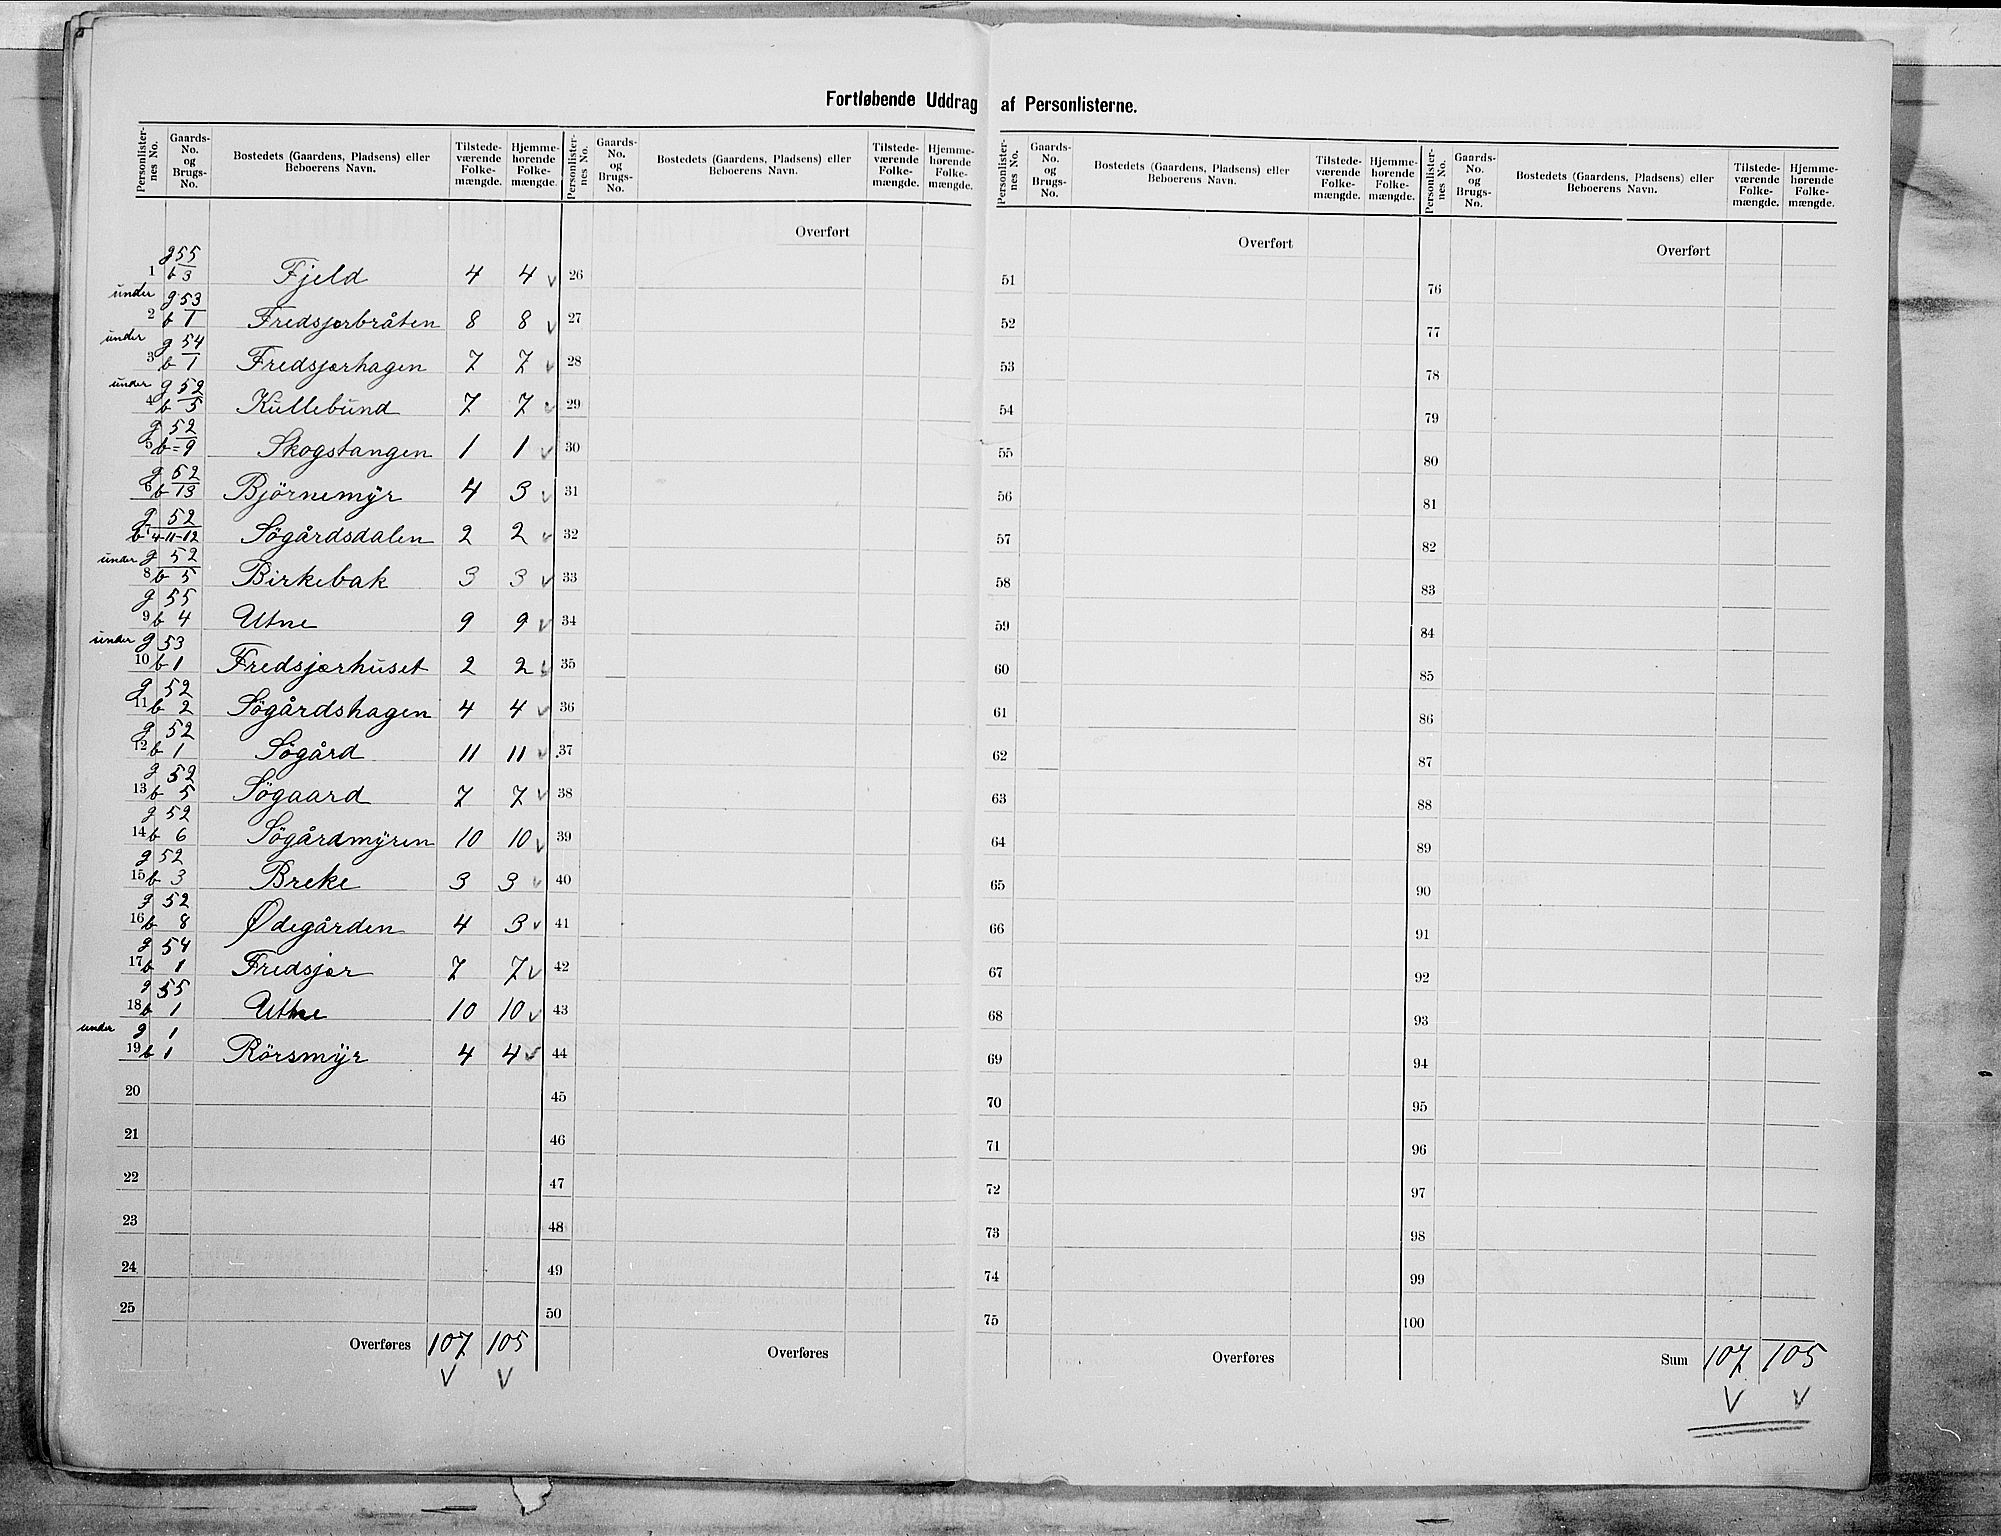 Fortløbende Uddrag af Personlisterne.
Personlister-nes No. Gaards-No. og Brugs-No. Bostedets (Gaardens, Pladsens) eller Beboerens Navn. Tilstede-værende Folke-mængde. Hjemme-hørende Folke-mængde.
Personlister-nes No. Gaards-No. og Brugs-No. Bostedets (Gaardens, Pladsens) eller Beboerens Navn. Tilstede-værende Folke-mængde. Hjemme-hørende Folke-mængde.
Personlister-nes No. Gaards-No. og Brugs-No. Bostedets (Gaardens, Pladsens) eller Beboerens Navn. Tilstede-værende Folke-mængde. Hjemme-hørende Folke-mængde.
Personlister-nes No. Gaards-No. og Brugs-No. Bostedets (Gaardens, Pladsens) eller Beboerens Navn. Tilstede-værende Folke-mængde. Hjemme-hørende Folke-mængde.
1 g 55 b 3 Fjeld 4 4 v
2 under g 53 b 1 Fredsjørbråten 8 8 v
3 under g 54 b 1 Fredsjørhagen 7 7 v
4 under g 52 b 5 Kullebund 7 7 v
5 g 52 b = 9 Skogstangen 1 1 v
6 g 52 b 13 Bjørnemyr 4 3 v
7 g 52 b 4-11-12 Søgårdsdalen 2 2 v
8 under g 52 b 5 Birkebak 3 3 v
9 g 55 b 4 Utne 9 9 v
10 under g 53 b 1 Fredsjørhuset 2 2 v
11 g 52 b 2 Søgårdshagen 4 4 v
12 g 52 b 1 Søgård 11 11 v
13 g 52 b 5 Søgaard 7 7 v
14 g 52 b 6 Søgårdmyren 10 10 v
15 g 52 b 3 Breke 3 3 v
16 g 52 b 8 Ødegården 4 3 v
17 g 54 b 1 Fredsjør 7 7 v
18 g 55 b 1 Utne 10 10 v
19 under g 1 b 1 Rörsmyr 4 4 v
20
21
22
23
24
25
Overføres 107 105
v v
Overført
26
27
28
29
30
31
32
33
34
35
36
37
38
39
40
41
42
43
44
45
46
47
48
49
50
Overføres
Overført
51
52
53
54
55
56
57
58
59
60
61
62
63
64
65
66
67
68
69
70
71
72
73
74
75
Overføres
Overført
76
77
78
79
80
81
82
83
84
85
86
87
88
89
90
91
92
93
94
95
96
97
98
99
100
Sum 107 105
v v